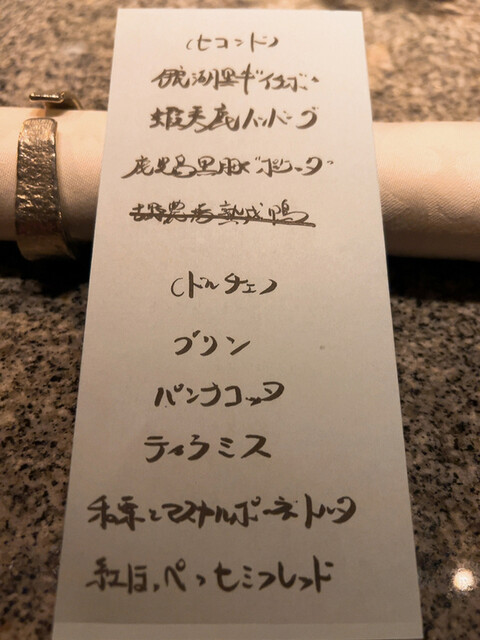 (セコンド)
伊豆湖黒牛"イチボ"
蝦夷鹿ハンバーグ
鹿児島黒豚"ポルケッタ"
熟成鴨
(ドルチェ)
プリン
パンナコッタ
ティラミス
和栗とマスカルポーネトルタ
紅ほっぺセミフレッド